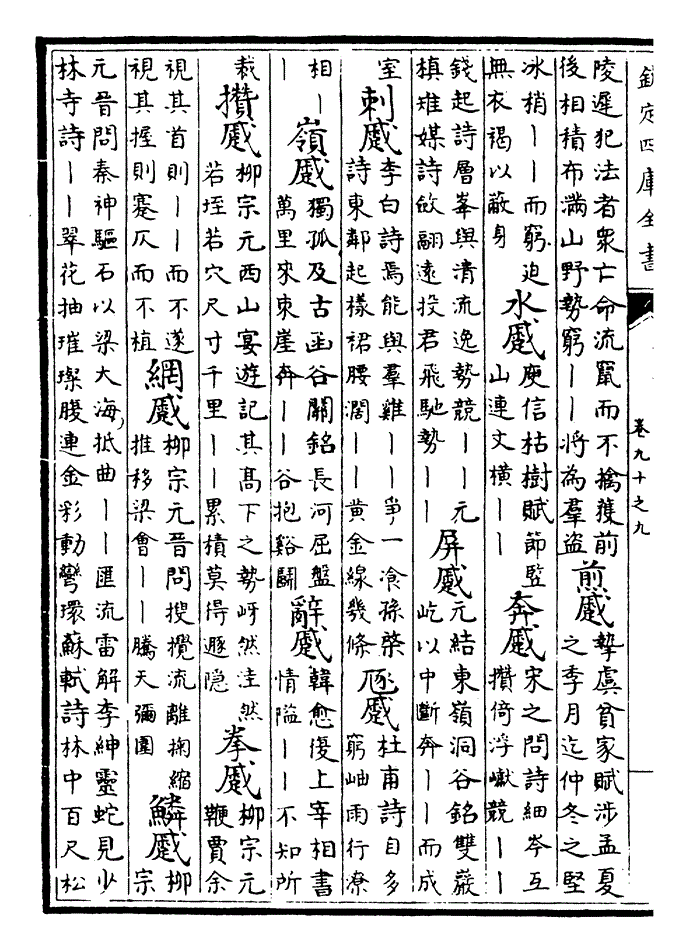 欽定四庫全書
卷九十之九
陵遲犯法者衆亡命流竄而不擒獲前
後相積布滿山野勢窮||將為羣盜
煎蹙
摯虞貧家賦涉孟夏
之季月迄仲冬之堅
冰梢||而窮迫
無衣褐以蔽身
水蹙
庾信枯樹賦節豎
山連文横||
奔蹙
宋之問詩細岑互
攢倚浮巘競||
錢起詩層峯與清流逸勢競||元
槙雉媒詩斂翮遠投君飛馳勢||
屏蹙
元結東嶺洞谷銘雙巖
屹以中斷奔||而成
室
刺蹙
李白詩焉能與羣雞||爭一飡孫棨
詩東鄰起樣裙腰濶||黄金線幾條
豗蹙
杜甫詩自多
窮岫雨行潦
相|
|
嶺蹙
獨孤及古函谷關銘長河屈盤
萬里來東崖奔||谷抱谿鬭
辭蹙
韓愈復上宰相書
情隘||不知所
裁
攢蹙
柳宗元西山宴遊記其髙下之勢岈然洼然
若垤若穴尺寸千里||累積莫得遯隐
拳蹙
柳宗元
鞭賈余
視其首則||而不遂
視其握則蹇仄而不植
網蹙
柳宗元晉問搜攪流離掬縮
推移梁會||騰天彌圍
鱗蹙
柳
宗
元晉問秦神驅石以梁大海抵曲||匯流雷解李紳靈蛇見少
林寺詩||翠花抽璀璨腹連金彩動彎環蘇軾詩林中百尺松